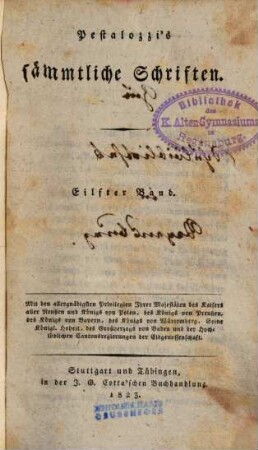 Pestalozzi's
sämmtliche Schriften.
Bibliothek
des
K. Alten Gymnasiums
in
Regensburg.
Eilfter Band.
Mit den allergnädigsten Privilegien Ihrer Majestäten des Kaisers
aller Reußen und Königs von Polen, des Königs von Preußen,
des Königs von Bayern, des Königs von Würtemberg, Seiner
Königl. Hoheit, des Großherzogs von Baden und der Hoch-
löblichen Cantonsregierungen der Eidgenossenschaft.
Stuttgart und Tübingen,
in der J. G. Cotta'schen Buchhandlung.
1823.